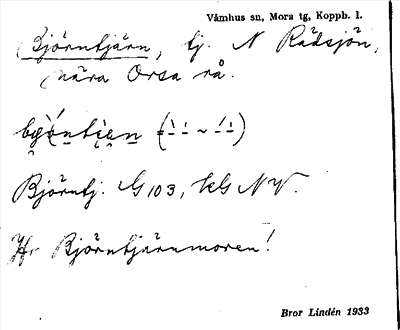 Våmhus sn, Mora tg, Koppb. l.
Björntjärn, tj. N Rädsjön,
nära Orsa rå.
Björntj. G 103, kG NV.
Hr Björntjärnmoren!
Bror Lindén 1933